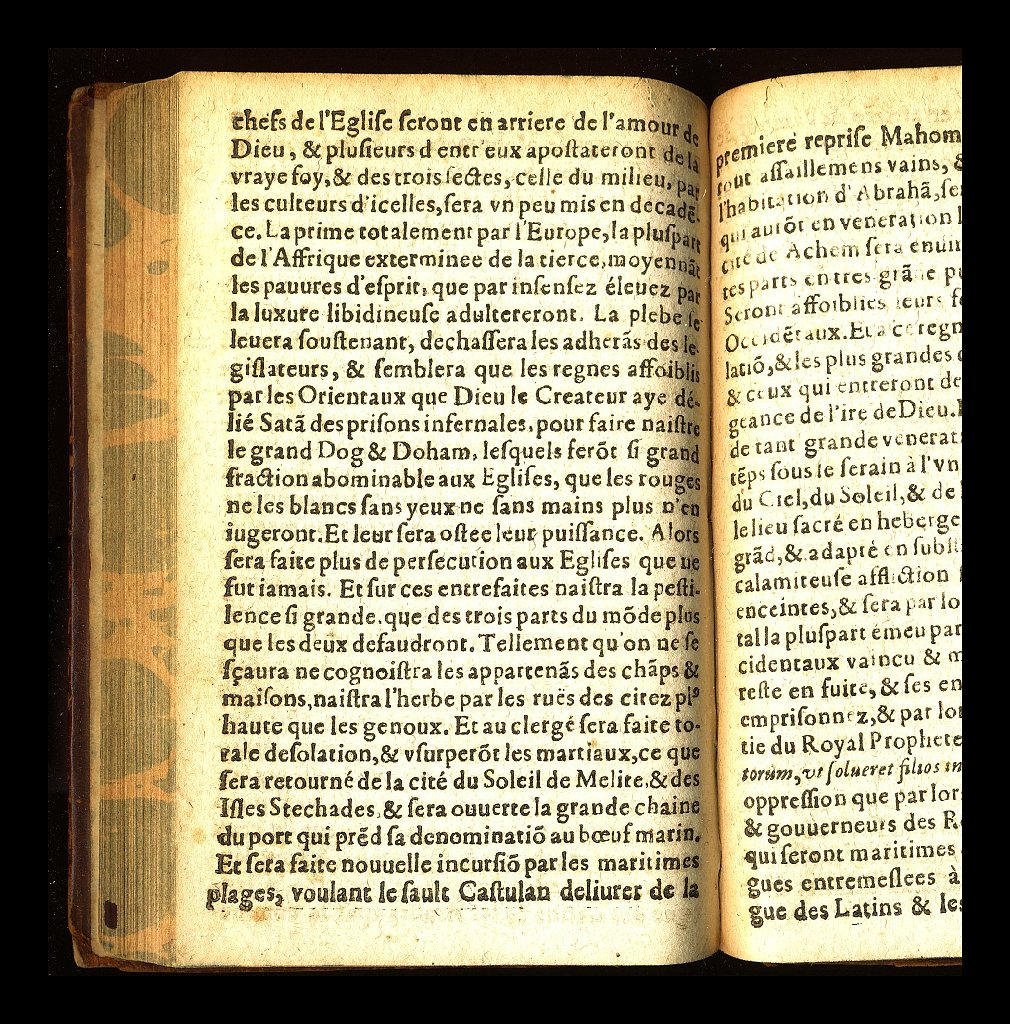 chefs de l'Egliſe ſeront en arriere de l'amour de
Dieu, & pluſieurs d entr'eux apoſtateront de la
vraye foy, & des trois ſectes, celle du milieu, par
les culteurs d'icelles, ſera vn peu mis en decadẽ-
ce. La prime totalement par l'Europe, la pluſpart
de l'Affrique exterminee de la tierce, moyennãt
les pauures d'eſprit, que par inſenſez éleuez par
la luxure libidineuſe adultereront. La plebe ſe
leuera ſouſtenant, dechaſſera les adherãs des le-
giſlateurs, & ſemblera que les regnes affoiblis
par les Orientaux que Dieu le Createur aye dé-
lié Satã des priſons infernales, pour faire naiſtre
le grand Dog & Doham, leſquels ferõt ſi grand
fraction abominable aux Egliſes, que les rouges
ne les blancs ſans yeux ne ſans mains plus n'en
iugeront. Et leur ſera oſtee leur puiſſance. Alors
ſera faite plus de perſecution aux Egliſes que ne
fut iamais. Et ſur ces entrefaites naiſtra la peſti-
lence ſi grande. que des trois parts du mõde plus
que les deux defaudront. Tellement qu'on ne ſe
ſçaura ne cognoiſtra les appartenãs des chãps &
maiſons, naiſtra l'herbe par les ruës des citez plꝰ
haute que les genoux. Et au clergé ſera faite to-
tale deſolation, & vſurperõt les martiaux, ce que
ſera retourné de la cité du Soleil de Melite, & des
Iſles Stechades, & ſera ouuerte la grande chaine
du port qui prẽd ſa denominatiõ au bœuf marin.
Et ſera faite nouuelle incurſiõ par les maritimes
plages, voulant le ſault Caſtulan deliurer de la
premiere repriſe Mahom
tout aſſaillemens vains, &
l'habitation d'Abrahã, ſe
qui aurõt en veneration
cité de Achem ſera enui
tes parts en tres grãde
Seront affoiblies leurs
Occidẽtaux. Et a ce regn
latiõ, & les plus grandes
& ceux qui entreront de
geance de l'ire de Dieu.
de tant grande venerat
tẽps ſous le ſerain à l'vn
du Ciel, du Soleil, & de
le lieu ſacré en heberge
grãd, & adapté en ſubſt
calamiteuſe affliction
enceintes, & ſera par lo
tal la pluſpart émeu par
cidentaux vaincu & m
reſte en fuite, & ſes en
empriſonnez, & par lo
tie du Royal Prophete
torum, vt ſolueret filios in
oppreſſion que par lor
& gouuerneurs des R
qui ſeront maritimes
gues entremeſlees à
gue des Latins & les